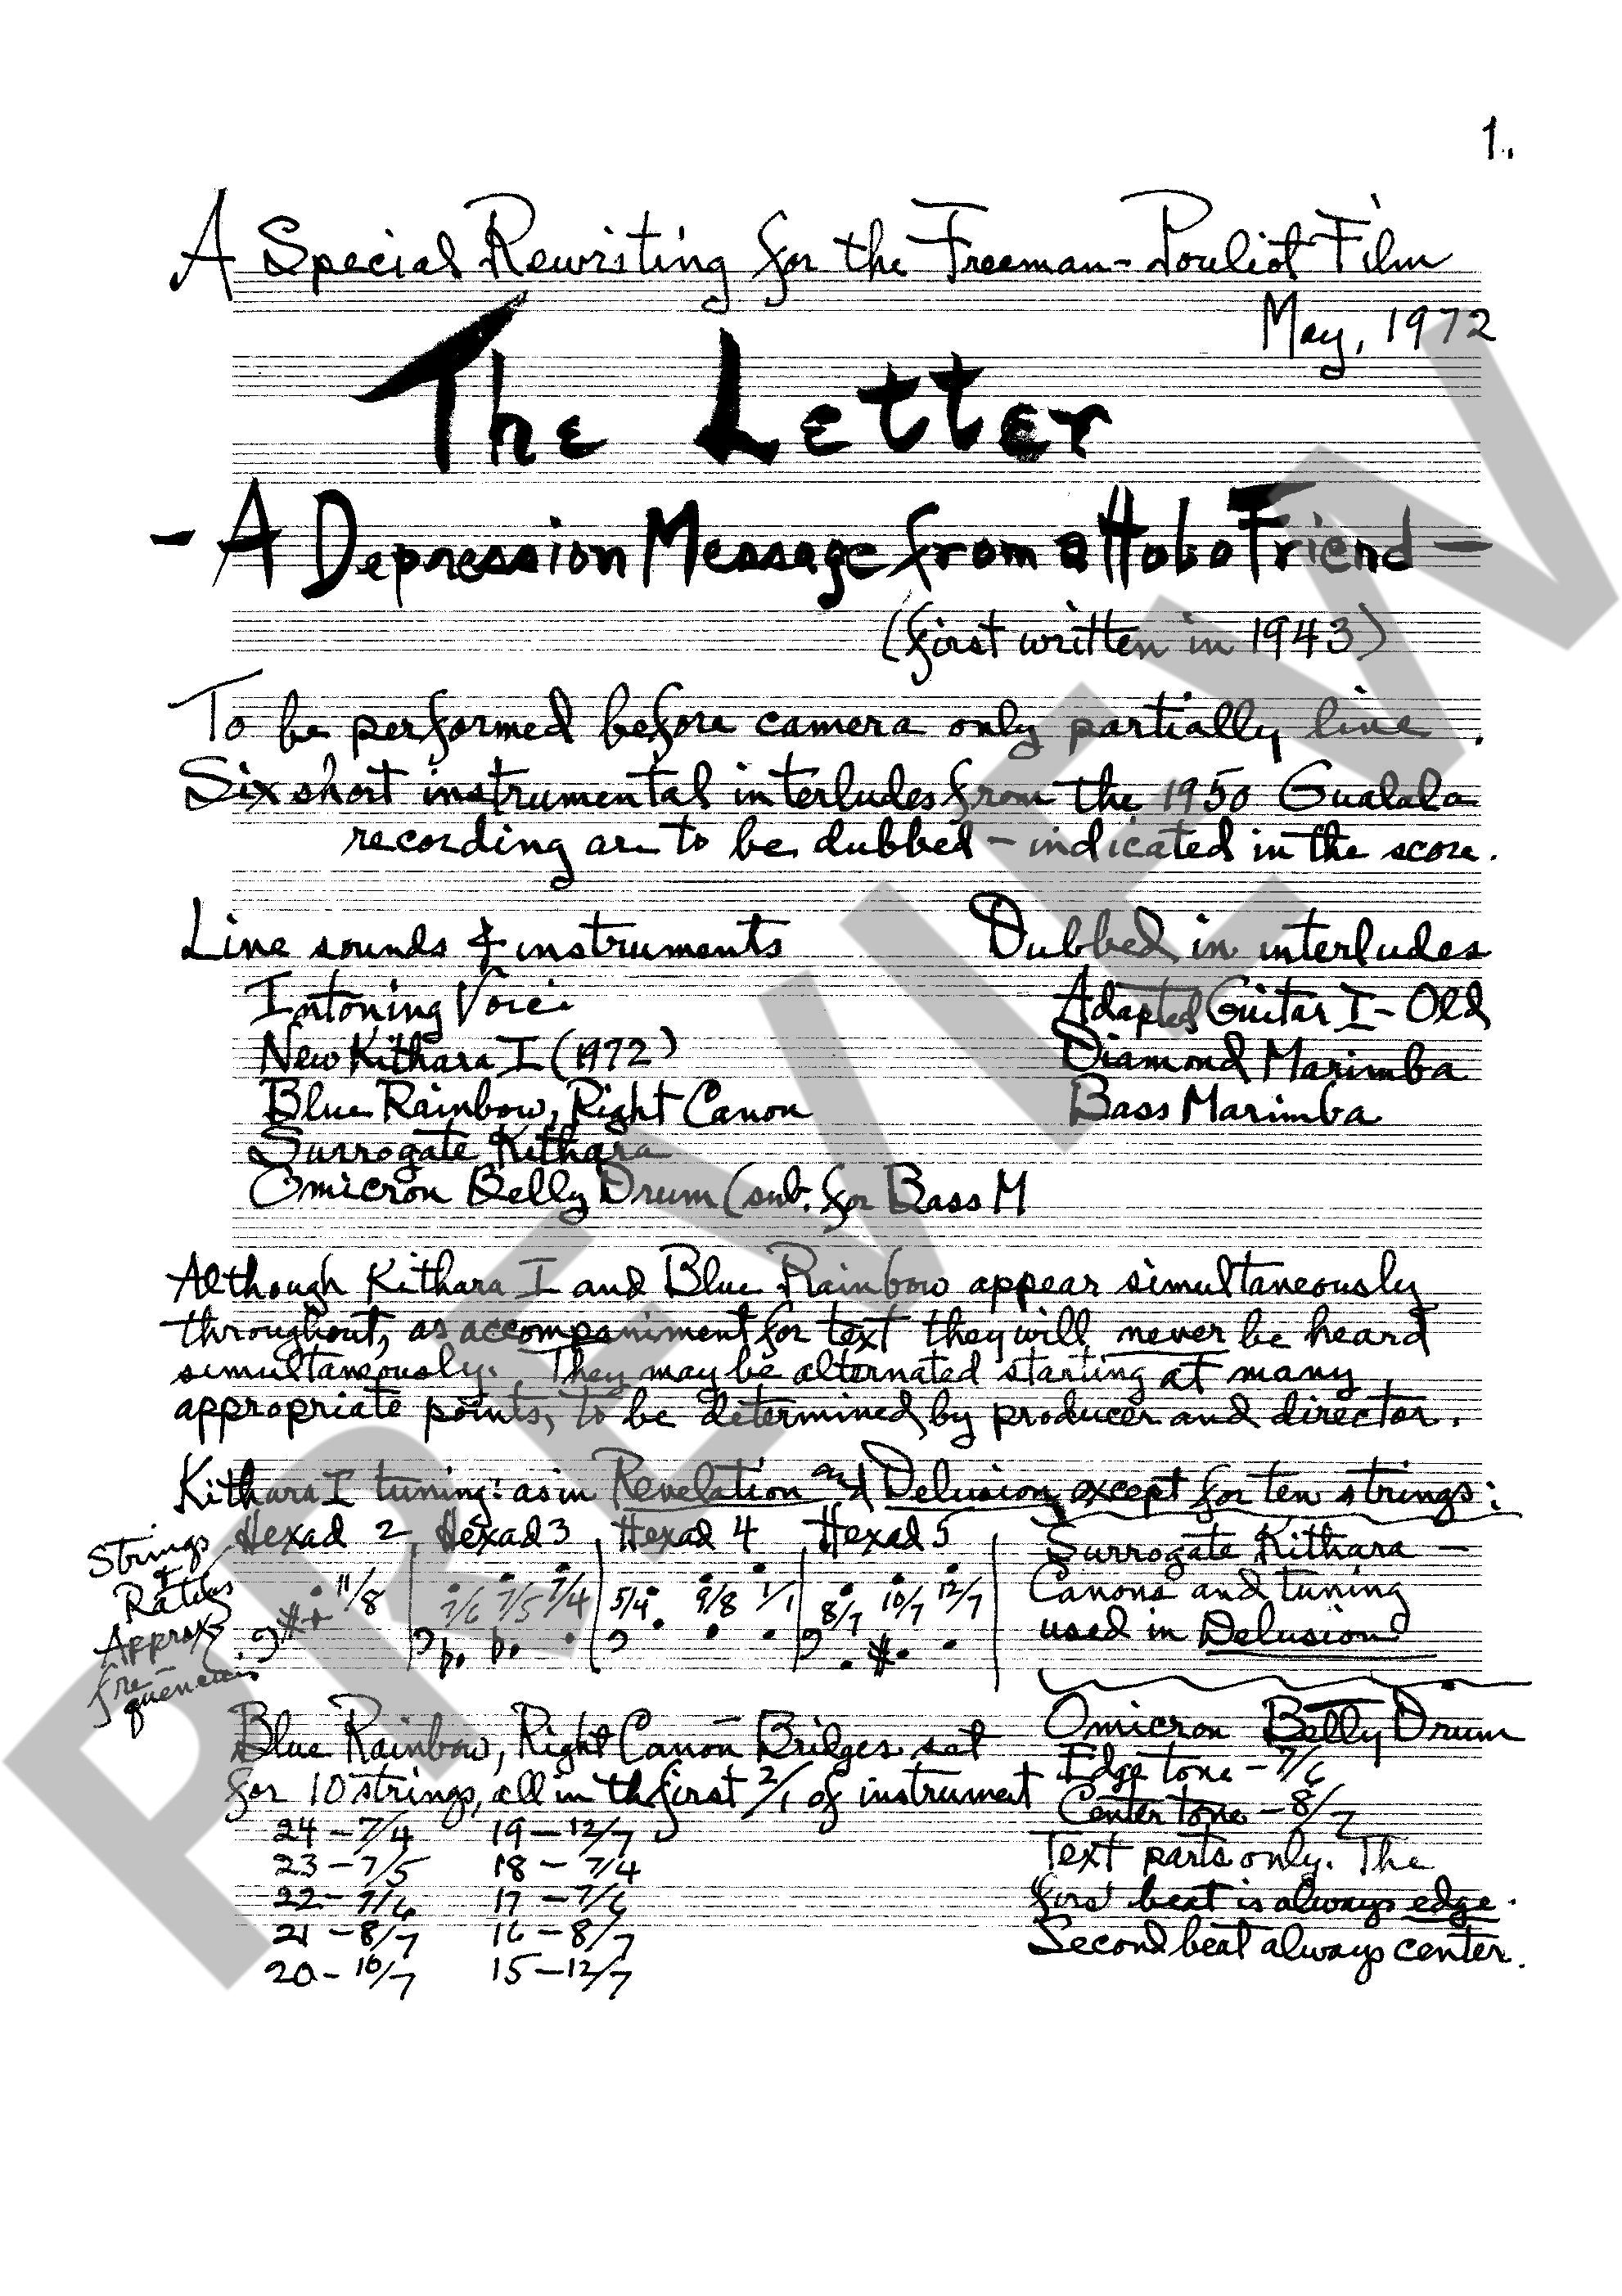 1.
A Special Rewriting for the Freeman-Pouliot Film
May, 1972
The Letter
- A Depression Message from a Hobo Friend -
(first written in 1943)
To be performed before camera only partially live.
Six short instrumental interludes from the 1950 Gualala
recording are to be dubbed - indicated in the score.
Live sounds & instruments
Intoning Voice
New Kithara I (1972)
Blue Rainbow, Right Canon
Surrogate Kithara
Omicron Belly Drum (sub. for Bass M
Dubbed in interludes
Adapted Guitar I - Old
Diamond Marimba
Bass Marimba
Although Kithara I and Blue Rainbow appear simultaneously
throughout, as accompaniment for text they will never be heard
simultaneously. They may be alternated starting at many
appropriate points, to be determined by producer and director.
Kithara I tuning: as in Revelation and Delusion except for ten strings:
Strings
&
Ratios
Approx
fre-
quencies
Hexad 2 Hexad 3 Hexad 4 Hexad 5
11/8 7/6 7/5 7/4 5/4 9/8 1/1 8/7 10/7 12/7
Surrogate Kithara -
Canons and tuning
used in Delusion
Blue Rainbow, Right Canon - Bridges set
for 10 strings, all in the first 2/1 of instrument
24 - 7/4 19 - 12/7
23 - 7/5 18 - 7/4
22 - 7/6 17 - 7/6
21 - 8/7 16 - 8/7
20 - 10/7 15 - 12/7
Omicron Belly Drum
Edge tone - 7/6
Center tone - 8/7
Text parts only. The
first beat is always edge.
Second beat always center.
PREVIEW